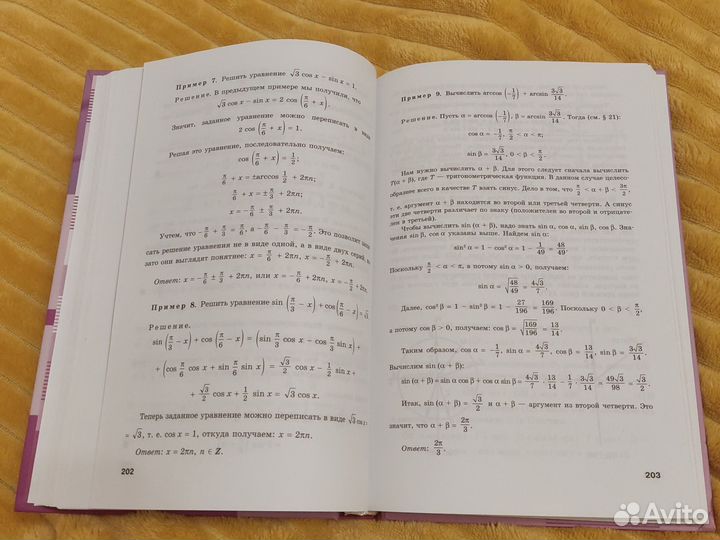 Пример 7. Решить уравнение √3 cos x − sin x = 1.
Решение. В предыдущем примере мы получили, что
√3 cos x − sin x = 2 cos (π/6 + x).
Значит, заданное уравнение можно переписать в виде
2 cos (π/6 + x) = 1.
Решая это уравнение, последовательно получаем:
cos (π/6 + x) = 1/2;
π/6 + x = ±arccos 1/2 + 2πn;
π/6 + x = ± π/3 + 2πn;
x = − π/6 ± π/3 + 2πn.
Учтем, что − π/6 + π/3 = π/6, а − π/6 − π/3 = − π/2. Это позволит
сать решение уравнения не в виде одной, а в виде двух серий,
зато они выглядят понятнее: x = π/6 + 2πn, x = − π/2 + 2πn.
Ответ: x = − π/6 ± π/3 + 2πn, или x = π/6 + 2πn, x = − π/2 + 2πn.
Пример 8. Решить уравнение sin (π/3 − x) + cos (π/6 − x) = √3
Решение.
sin (π/3 − x) + cos (π/6 − x) = (sin π/3 cos x − cos π/3 sin x) +
+ (cos π/6 cos x + sin π/6 sin x) = √3/2 cos x − 1/2 sin x +
+ √3/2 cos x + 1/2 sin x = √3 cos x.
Теперь заданное уравнение можно переписать в виде √3 cos x =
= √3, т. е. cos x = 1, откуда получаем: x = 2πn.
Ответ: x = 2πn, n ∈ Z.
202
Пример 9. Вычислить arccos (− 1/7) + arcsin 3√3/14.
Решение. Пусть α = arccos (− 1/7), β = arcsin 3√3/14. Тогда (см. § 21):
cos α = − 1/7, π/2 < α < π;
sin β = 3√3/14, 0 < β < π/2.
Нам нужно вычислить α + β. Для этого следует сначала вычислить
T(α + β), где T — тригонометрическая функция. В данном случае целесо-
образнее всего в качестве T взять синус. Дело в том, что π/2 < α + β < 3π/2,
т. е. аргумент α + β находится во второй или третьей четверти. А синус
эти две четверти различает по знаку (положителен во второй и отрицате-
лен в третьей).
Чтобы вычислить sin (α + β), надо знать sin α, cos α, sin β, cos β. Зна-
чения sin β, cos α указаны выше. Найдем sin α:
sin² α = 1 − cos² α = 1 − 1/49 = 48/49.
Поскольку π/2 < α < π, а потому sin α > 0, получаем:
sin α = √(48/49) = 4√3/7.
Далее, cos² β = 1 − sin² β = 1 − 27/196 = 169/196. Поскольку 0 < β < π/2,
а потому cos β > 0, получаем: cos β = √(169/196) = 13/14.
Таким образом, cos α = − 1/7, sin α = 4√3/7, cos β = 13/14, sin β = 3√3/14.
Вычислим sin (α + β):
sin (α + β) = sin α cos β + cos α sin β = 4√3/7 · 13/14 − 1/7 · 3√3/14 = 49√3/98 = √3/2.
Итак, sin (α + β) = √3/2 и α + β — аргумент из второй четверти. Это
значит, что α + β = 2π/3.
Ответ: 2π/3.
203
Avito